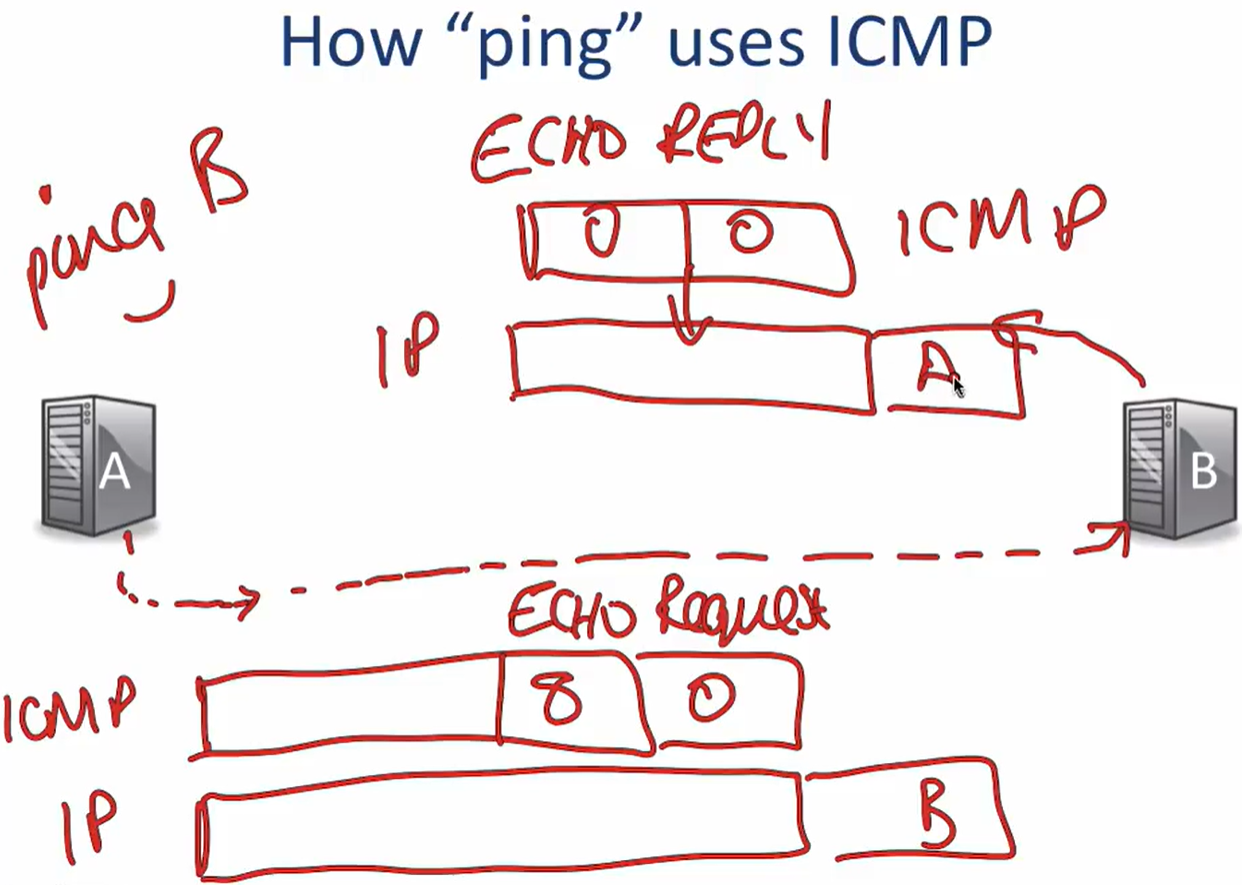 How “ping” uses ICMP
ECHO REPLY
ping B
0 0 ICMP
IP A
A B
ECHO Request
ICMP 8 0
IP B